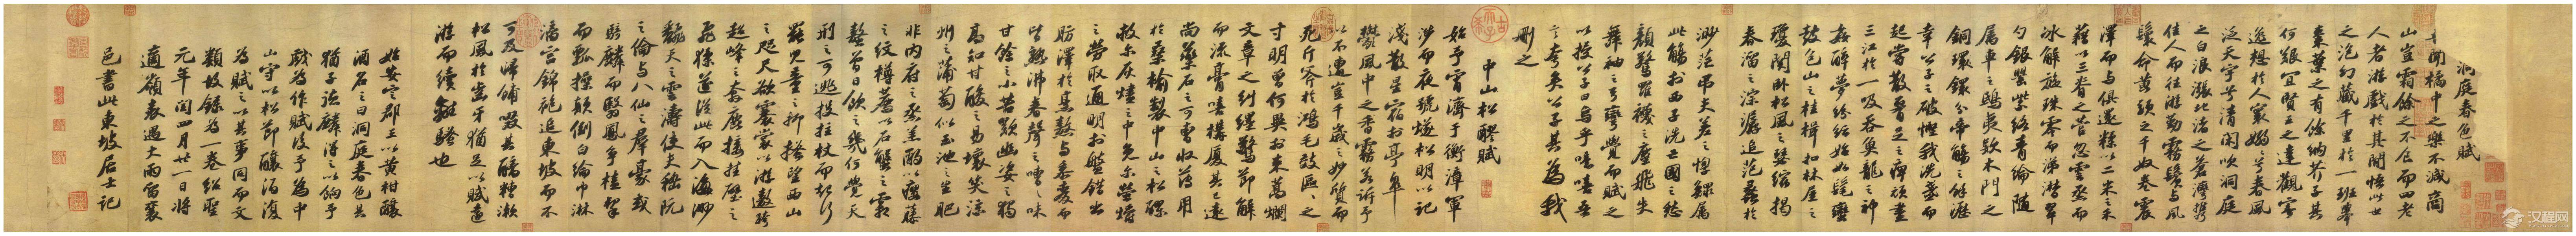 洞庭春色賦
吾聞橘中之樂不減商
山豈霜餘之不食而四老
人者游戲於其間悟此世
之泡幻藏千里於一班舉
棗葉之有餘納芥子其
何艱宜賢王之達觀寄
逸想於人寰嫋嫋兮春風
泛天宇兮清閑吹洞庭
之白浪漲北渚之蒼灣攜
佳人而往游勤霧鬢與風
鬟命黃頭之千奴卷震
澤而與俱還糅以二米之禾
藉以三脊之菅忽雲烝而
冰解旋珠零而涕潸翠
勺銀罌紫絡青綸隨
屬車之鴟夷款木門之
銅環分帝觴之餘瀝
幸公子之破慳我洗盞而
起嘗散腰足之痺頑盡
三江於一吸吞魚龍之神
姦醉夢紛紜始如髦蠻
鼓包山之桂楫扣林屋之
瓊關臥松風之瑟縮揭
春溜之淙潺追范蠡於
渺茫弔夫差之惸鰥屬
此觴於西子洗亡國之愁
顏驚羅襪之塵飛失
舞袖之弓彎覺而賦之
以授公子曰烏乎噫嘻吾
言夸矣公子其為我
刪之
中山松醪賦
始予宵濟于衡漳軍
涉而夜號燧松明以記
淺散星宿於亭皋
鬱風中之香霧若訴予
以不遭豈千歲之妙質而
死斤斧於鴻毛效區區之
寸明曾何異於束蒿爛
文章之糾纆驚節解
而流膏嘻構廈其已遠
尚藥石之可曹收薄用
於桑榆製中山之松醪
救尔灰燼之中免尔螢爝
之勞取通明於盤錯出
肪澤於烹熬與黍麥而
皆熟沸春聲之嘈嘈味
甘餘之小苦歎幽姿之獨
高知甘酸之易壞笑涼
州之蒲萄似玉池之生肥
非內府之烝羔酌以癭藤
之紋樽薦以石蟹之霜
螯曾日飲之幾何覺天
刑之可逃投拄杖而起行
罷兒童之抑搔望西山
之咫尺欲褰裳以游遨跨
超峰之奔鹿接挂壁之
飛猱遂從此而入海渺
翻天之雲濤使夫嵇阮
之倫與八仙之群豪或
騎麟而翳鳳爭榼挈
而瓢操顛倒白綸巾淋
漓宮錦袍追東坡而不
可及歸餔歠其醨糟漱
松風於齒牙猶足以賦遠
游而續離騷也
始安定郡王以黃柑釀
酒名之曰洞庭春色其
猶子德麟得之以餉予
戲為作賦後予為中
山守以松節釀酒復
為賦之以其事同而文
類故錄為一卷紹聖
元年閏四月廿一日將
適嶺表遇大雨留襄
邑書此東坡居士記
汉程网